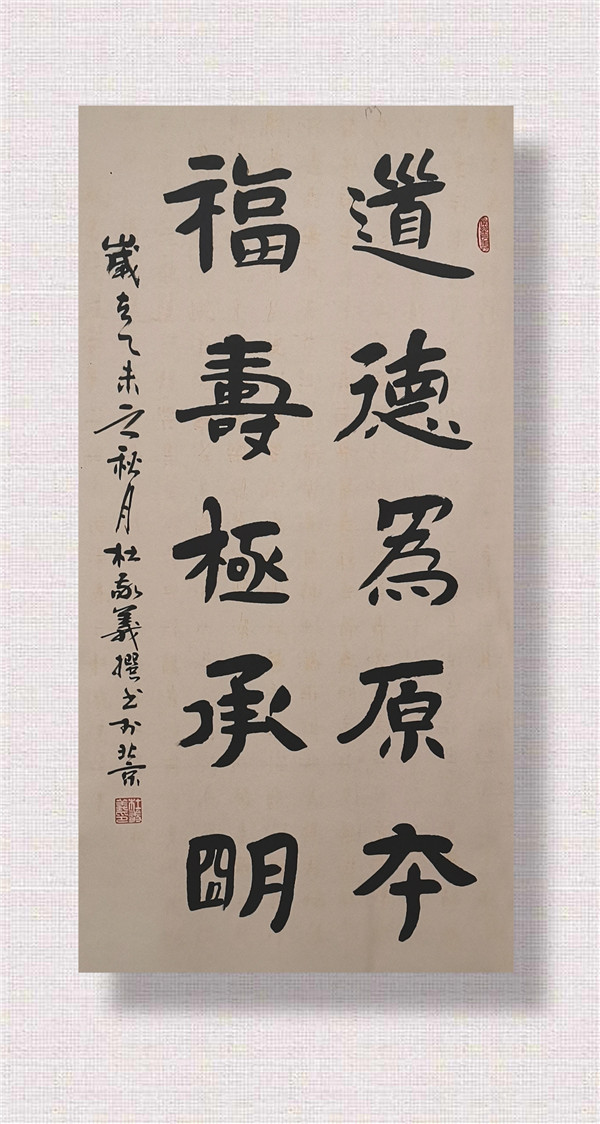 道德為原夲
福壽極承朙
歲在乙未之秋月杜敬義撰书於北京